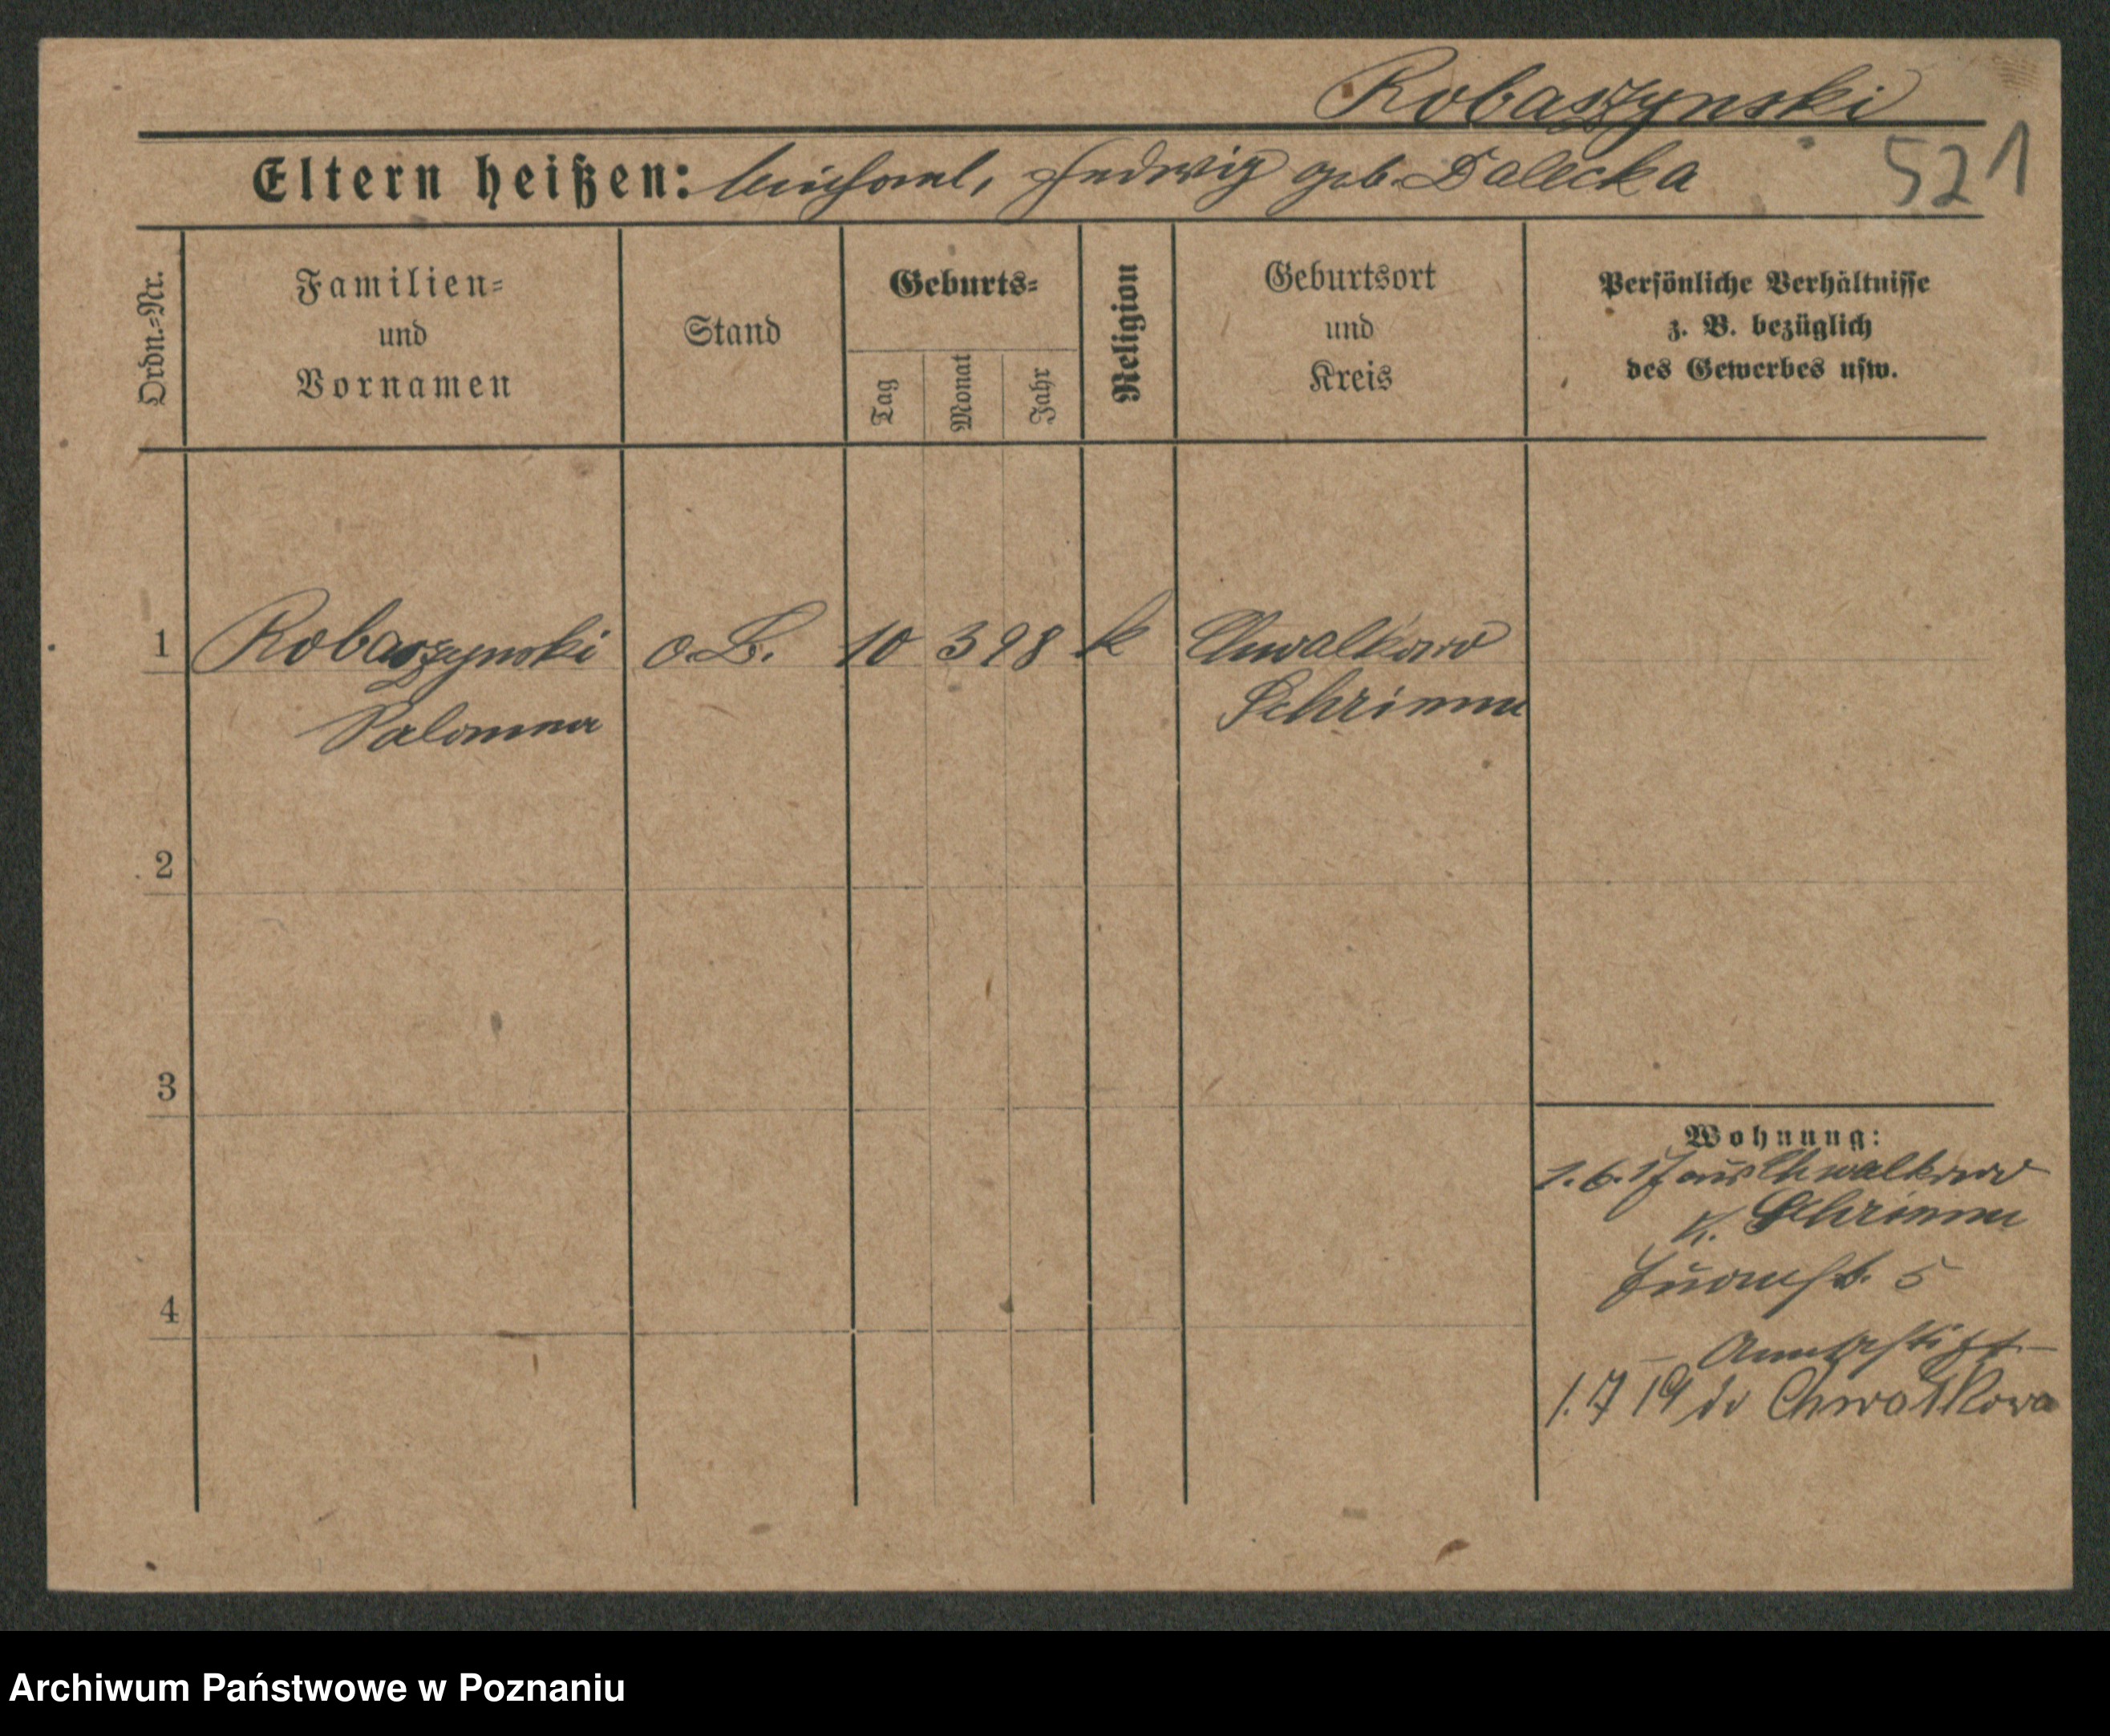 Robaszynski
521
Eltern heißen: Michael, Hedwig geb. Dalecka
Ordn.=Nr.
Familien=
und
Vornamen
Stand
Geburts=
Tag
Monat
Jahr
Religion
Geburtsort
und
Kreis
Persönliche Verhältnisse
z. B. bezüglich
des Gewerbes usw.
1 Robaszynski o. B. 10 3 98 k Chwalkowo
Salomea Schrimm
2
3
4
Wohnung:
1.6.17 aus Chwalkowo
K. Schrimm
5
1.7 19 do Chwałkowa
Archiwum Państwowe w Poznaniu